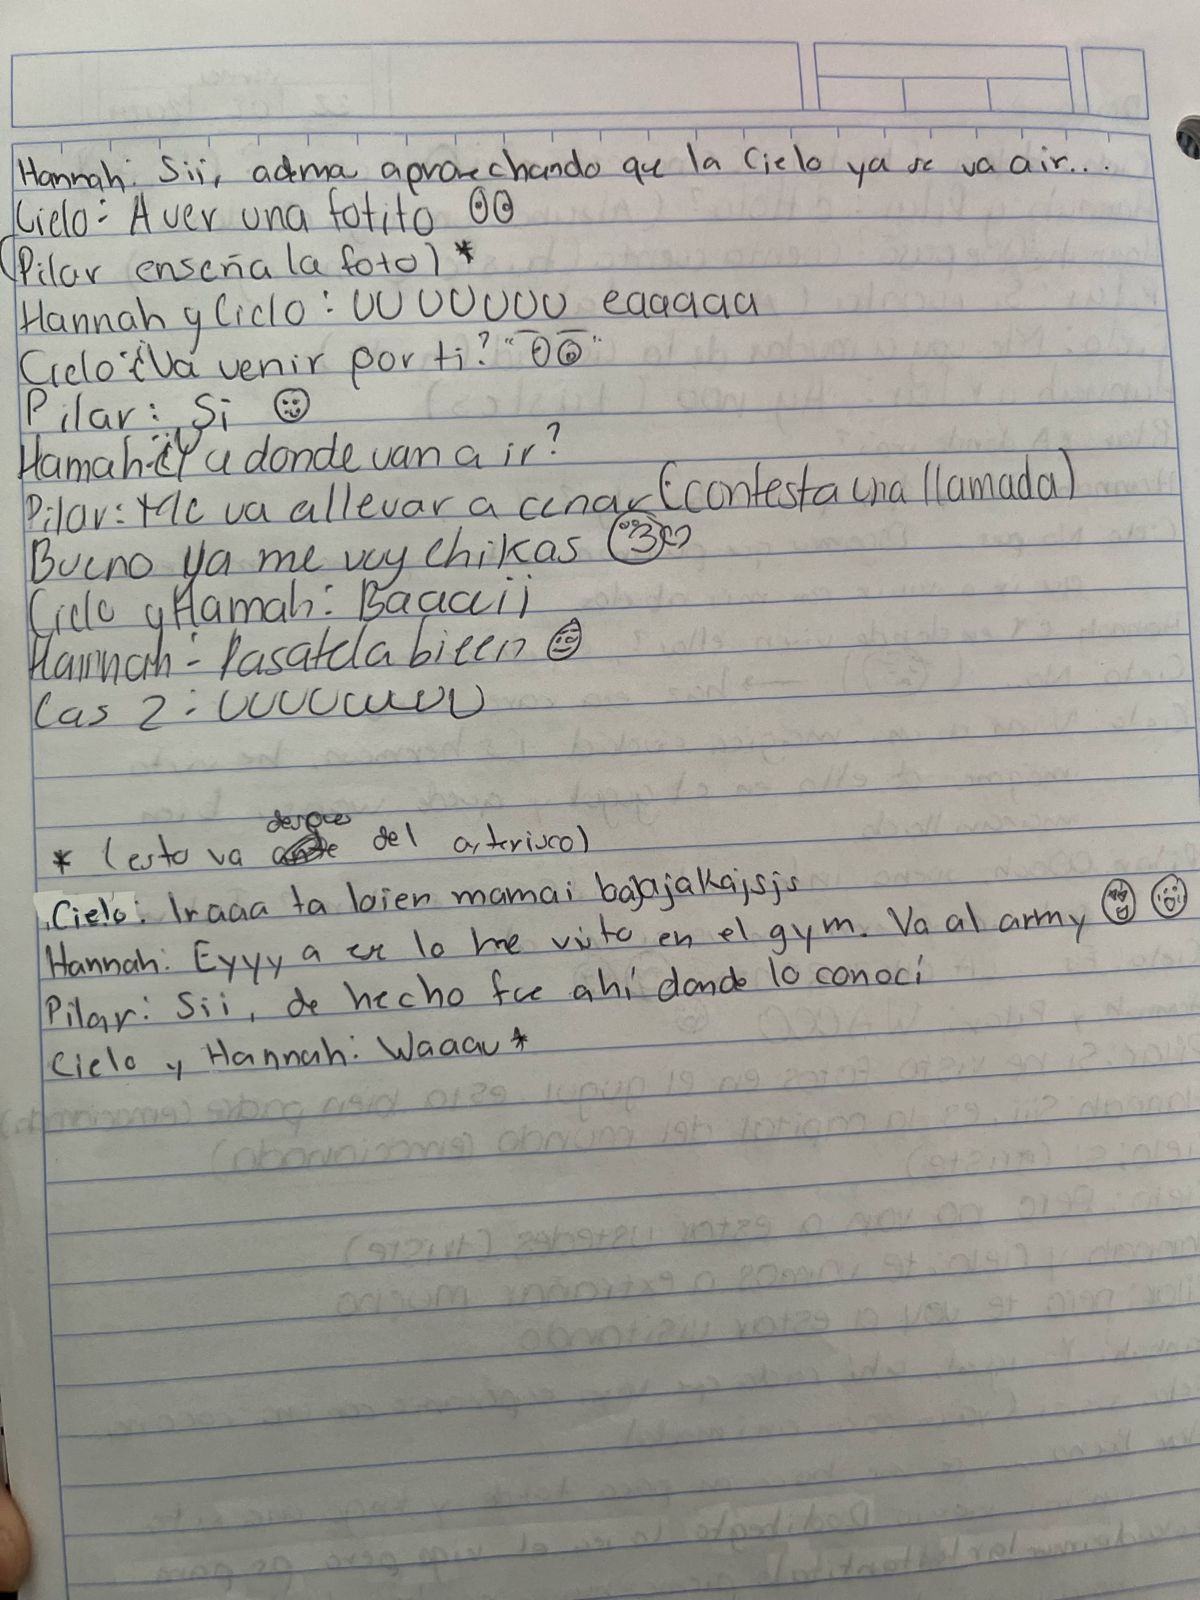 Hannah: Sii, adma aprovechando que la Cielo ya se va air...
Cielo: A ver una fotito
(Pilar enseña la foto) *
Hannah y Cielo: UUUUUUU eaaaaa
Cielo: ¿Va venir por ti?
Pilar: Si
Hannah: ¿Y a donde van a ir?
Pilar: Me va allevar a cenar (contesta una llamada)
Bueno ya me voy chikas
Cielo y Hannah: Baaaii
Hannah: Pasatela bieen
Las 2: UUUUUUUU
* (esto va despues del asterisco)
Cielo: Iraaa ta bien mamai bajajakajsjs
Hannah: Eyyy a lo he visto en el gym. Va al army
Pilar: Sii, de hecho fue ahí donde lo conocí
Cielo y Hannah: Waaau *